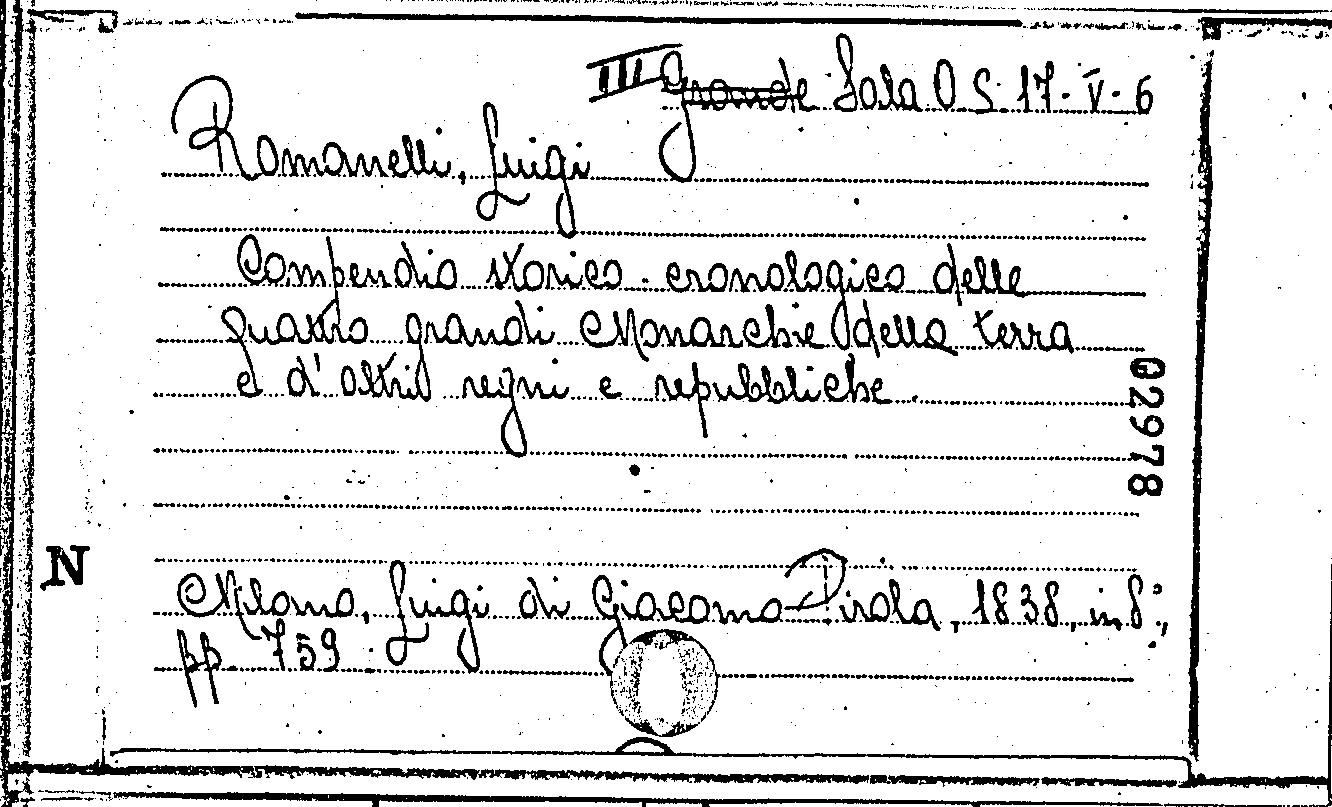 III Grande Sala O S. 17-V-6
Romanelli, Luigi
Compendio storico-cronologico delle
quattro grandi Monarchie della terra
e d'altri regni e repubbliche.
02978
N
Milano, Luigi di Giacomo Pirola, 1838, in 8°;
pp. 759.